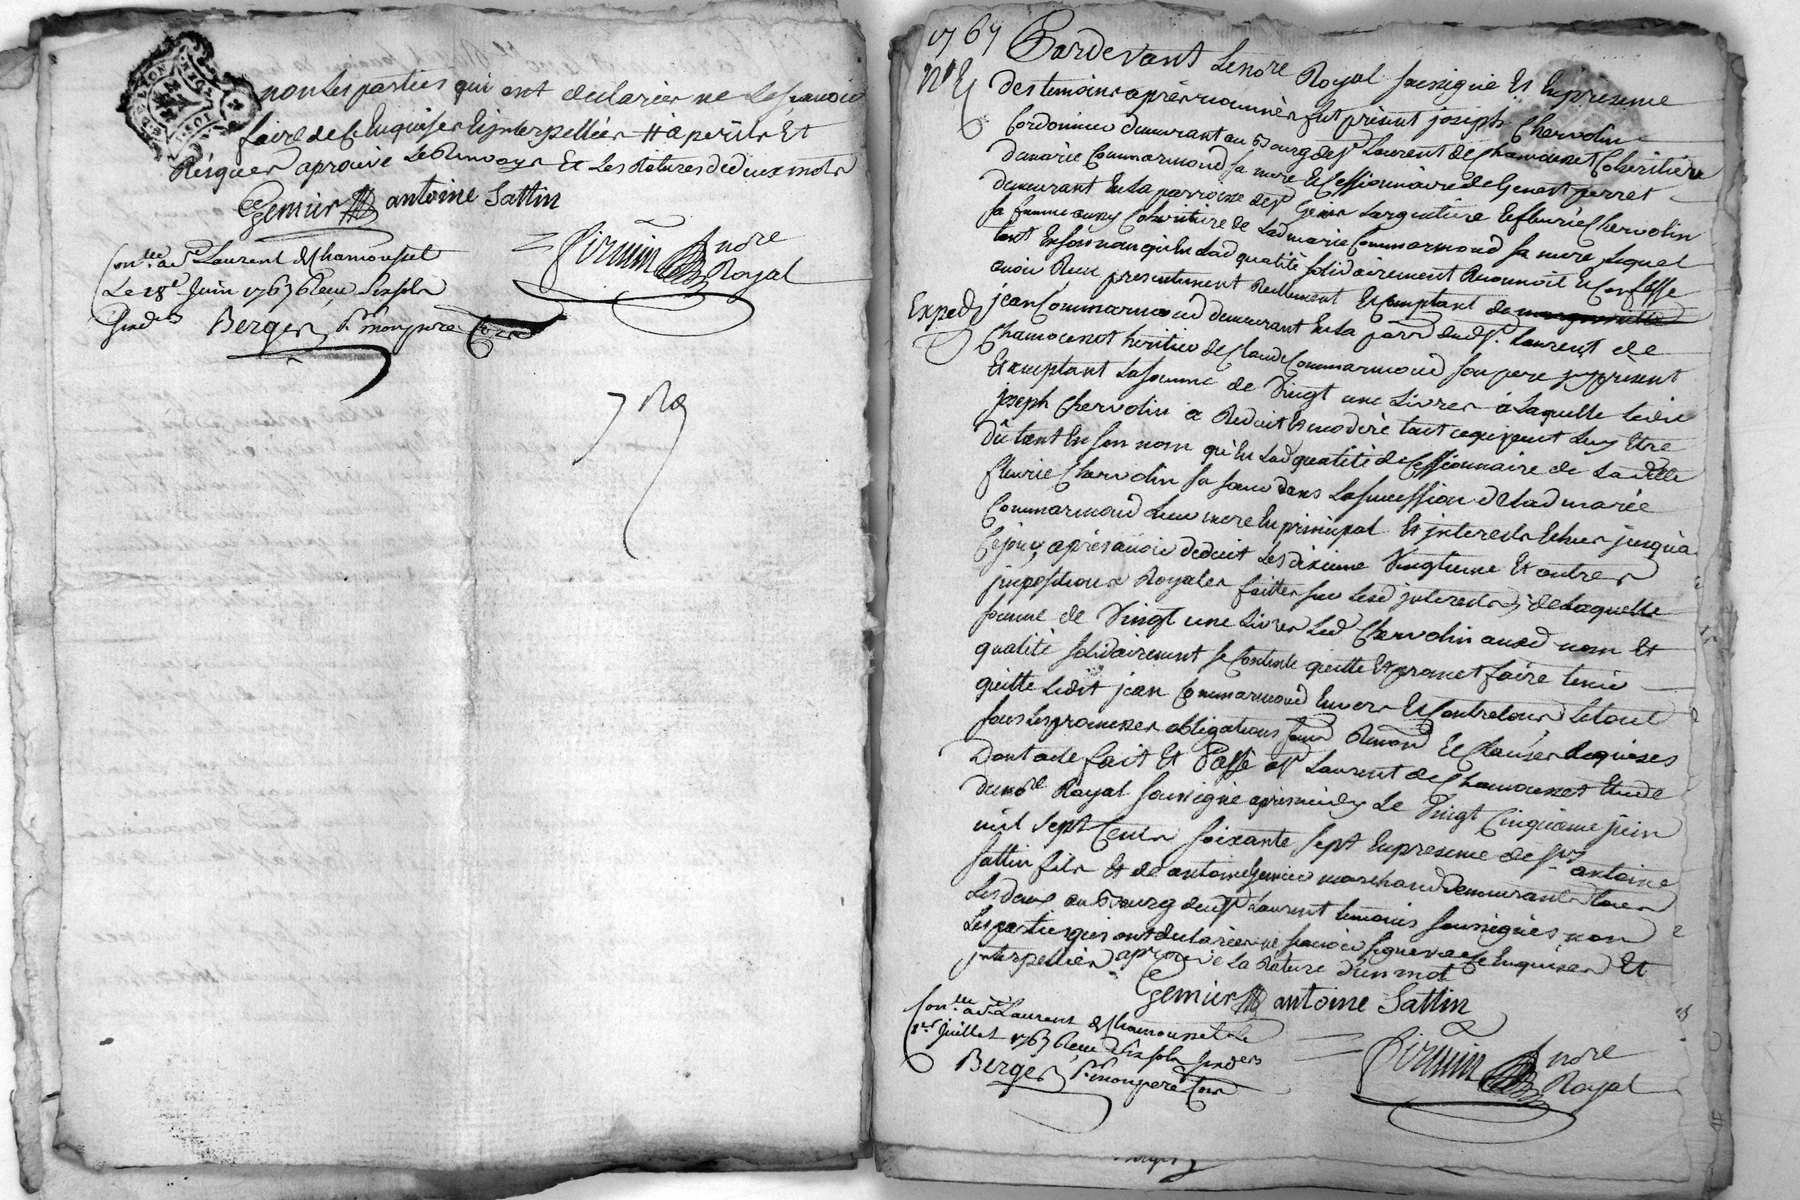 non les parties qui ont declarées ne le scavoir
faire de ce enquises et interpellées # à perils et
Risques aprouvé le Renvoye et les Ratures de deux mots
Gemier antoine Sattin
Pirmin Nore
Royal
Con.lle a St Laurent de Chamousset
Le 28e Juin 1767 Receu six sols
Berger pr monpere
1767
Pardevant Lenore Royal soussigné et En presence
destemoins aprés nommés fut présent joseph Chervolin
Cordonnier demeurant au Bourg de St Laurent de Chamousset Coheritière
demarie Commarmond sa mere et Cessionnaire de Genest perret
demeurant En la parroisse de St Genis Largentiere et fleurie Chervolin
sa femme aussy Coheritiere de Lad marie Commarmond sa mere Lequel
tant En son nom qu'En Lad qualité solidairement Reconnoit et Confesse
avoir Reçu presentement Reellement Et Comptant de
Exped
jean Commarmond demeurant En la parr dud St Laurent de
Chamousset héritier de Claude Commarmond son pere jcy present
et comptant La somme de Vingt une Livres à Laquelle ledit
joseph Chervolin a Reduit et moderé tout ce qui peut Luy Etre
dû tant En son nom qu'En Lad qualité de Cessionnaire de Ladite
fleurie Chervolin sa soeur dans La succession de Lad marie
Commarmond Leur mere En principal et jnterests Echus jusqu'a
Cejour aprés avoir déduit les dixieme Vingtieme Et autres
jmpositions Royales faittes sur lesd jnterests de Laquelle
somme de Vingt une Livres Led Chervolin aused nom Et
qualité solidairement se Contente quitte Et promet faire tenir
quitte Ledit jean Commarmond Envers Et Contre tous Le tout
sous les promesses obligations soumd Renond et Clauses Requises
Dont acte fait Et Passé a St Laurent de Chamousset Etude
du nore Royal soussigné aprés midy Le Vingt Cinquieme juin
mil sept Cents soixante sept En presence de Sr antoine
Sattin fils et de antoine Gemier marchand demeurants tous
Les deux au Bourg dud St Laurent temoins soussignés non
Les parties qui ont declarées ne scavoir signer de ce Enquises Et
jnterpellées aprouvé La Rature d'un mot
Gemier antoine Sattin
Con.lle a St Laurent de Chamousset Le
1er Juillet 1767 Receu six sols
Berger pr monpere
Pirmin Nore
Royal